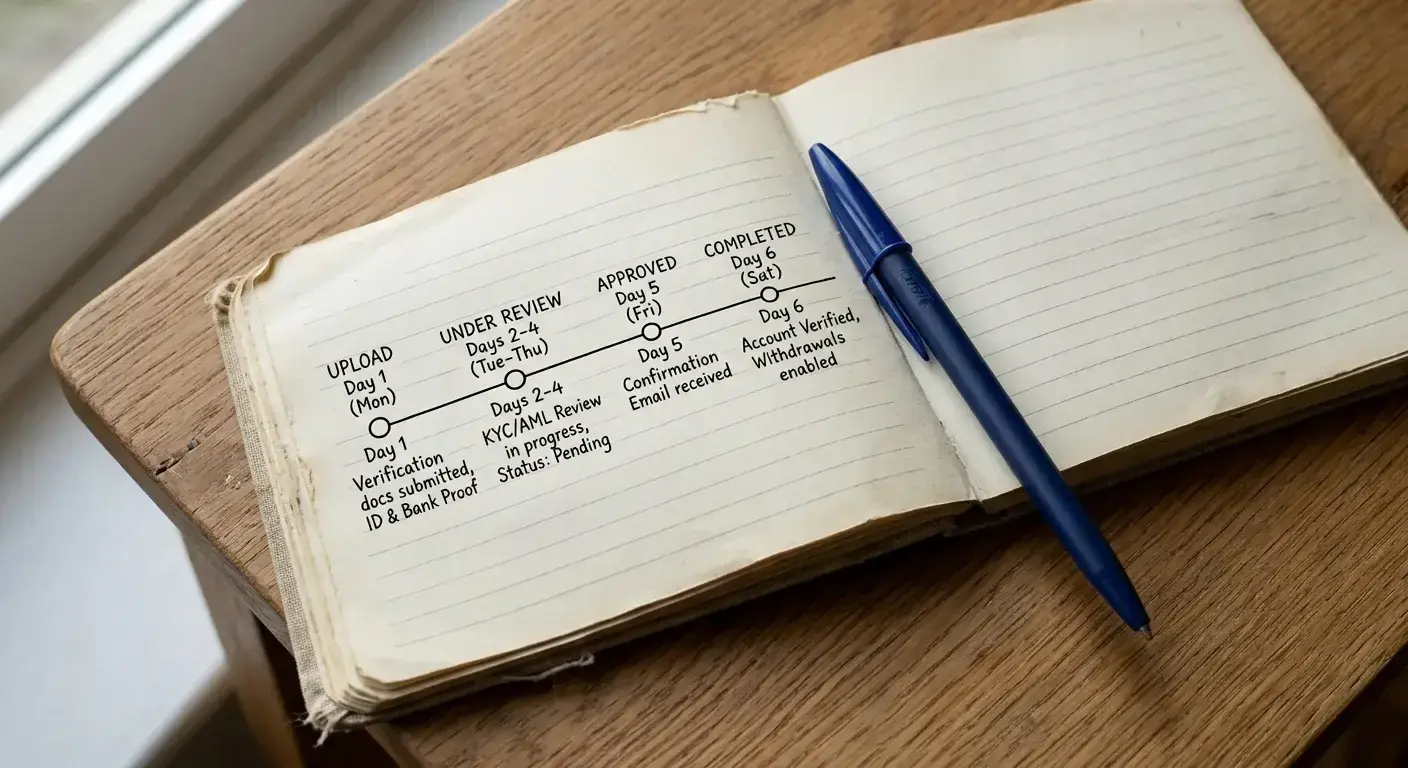 UPLOAD
Day 1
(Mon)
Day 1
Verification
docs submitted,
ID & Bank Proof
UNDER REVIEW
Days 2-4
(Tue-Thu)
Days 2-4
KYC/AML Review
in progress,
Status: Pending
APPROVED
Day 5
(Fri)
Day 5
Confirmation
Email received
COMPLETED
Day 6
(Sat)
Day 6
Account Verified,
WIthdrawals
enabled